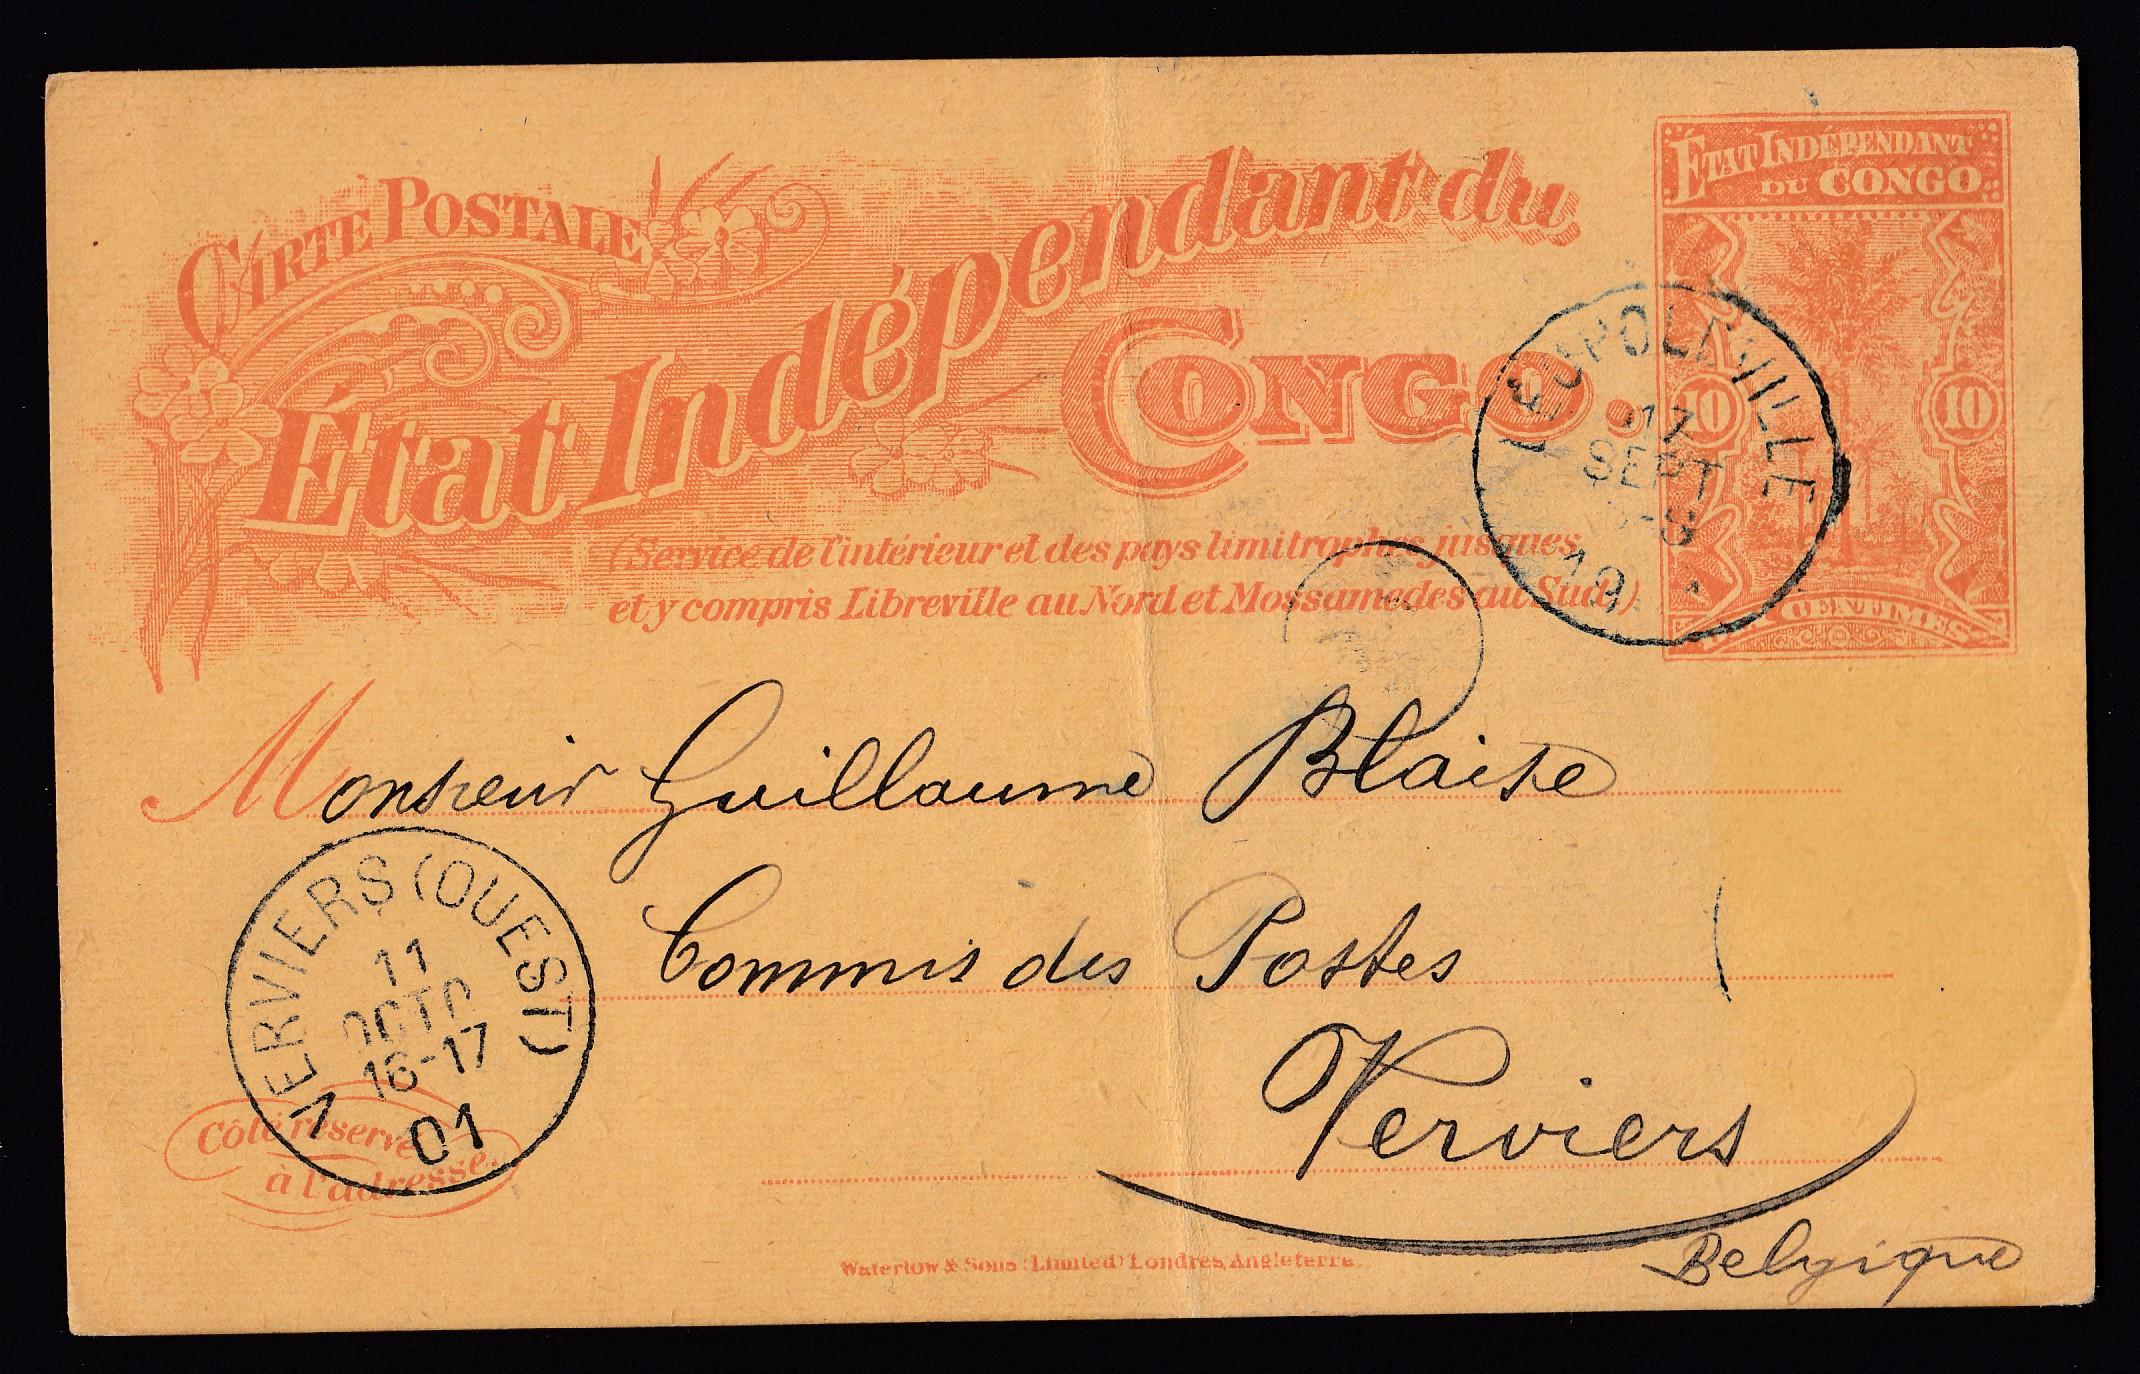 CARTE POSTALE
État Indépendant du
CONGO.
(Service de l'intérieur et des pays limitrophes jusques
et y compris Libreville au Nord et Mossamedes au Sud).
ÉTAT INDÉPENDANT
DU CONGO
10 10
CENTIMES
LÉOPOLDVILLE
17
SEPT
19
Monsieur Guillaume Blaise
Commis des Postes
Verviers
Belgique
VERVIERS (OUEST)
11
OCTO
16-17
01
Côté réservé
à l'adresse.
Waterlow & Sons (Limited) Londres, Angleterre.